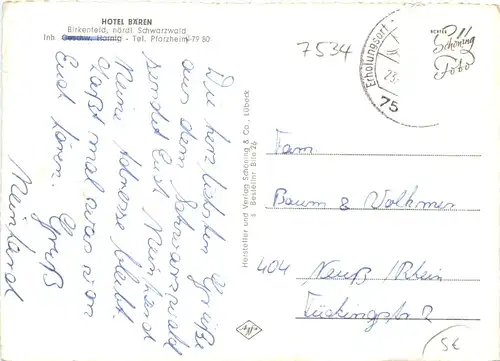 HOTEL BÄREN
Birkenfeld, nördl. Schwarzwald
Inh. Geschw. Hornig - Tel. Pforzheim 79 80
Die herzlichsten Grüße
aus dem Schwarzwald
sendet Euch Meinhard
Meine Adresse bleibt.
Laßt mal was von
Euch hören. Gruß
Meinhard
Hersteller und Verlag Schöning & Co., Lübeck
Bestellnr. Bite 26
7534
Erholungsort
75
ECHTES
Schöning
Foto
Fam.
Baum & Volkmer
404 Neuß / Rhein
Tückingstr. 2